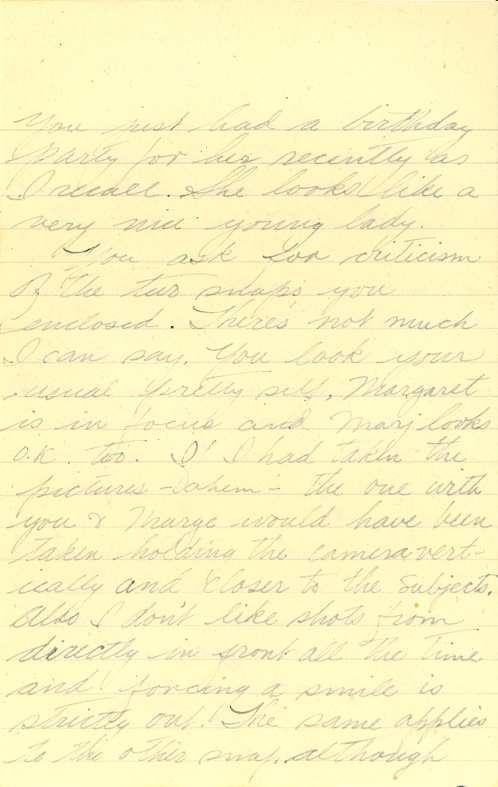 You just had a birthday
party for her recently as
I recall. She looks like a
very nice young lady.
You ask for criticism
of the two snaps you
enclosed. There's not much
I can say. You look your
usual pretty self. Margaret
is in focus and Marj looks
O.K. too. If I had taken the
pictures -ahem- the one with
you & Marge would have been
taken holding the camera vert-
ically and closer to the subjects.
Also I don't like shots from
directly in front all the time
and forcing a smile is
strictly out! The same applies
to the other snap, although